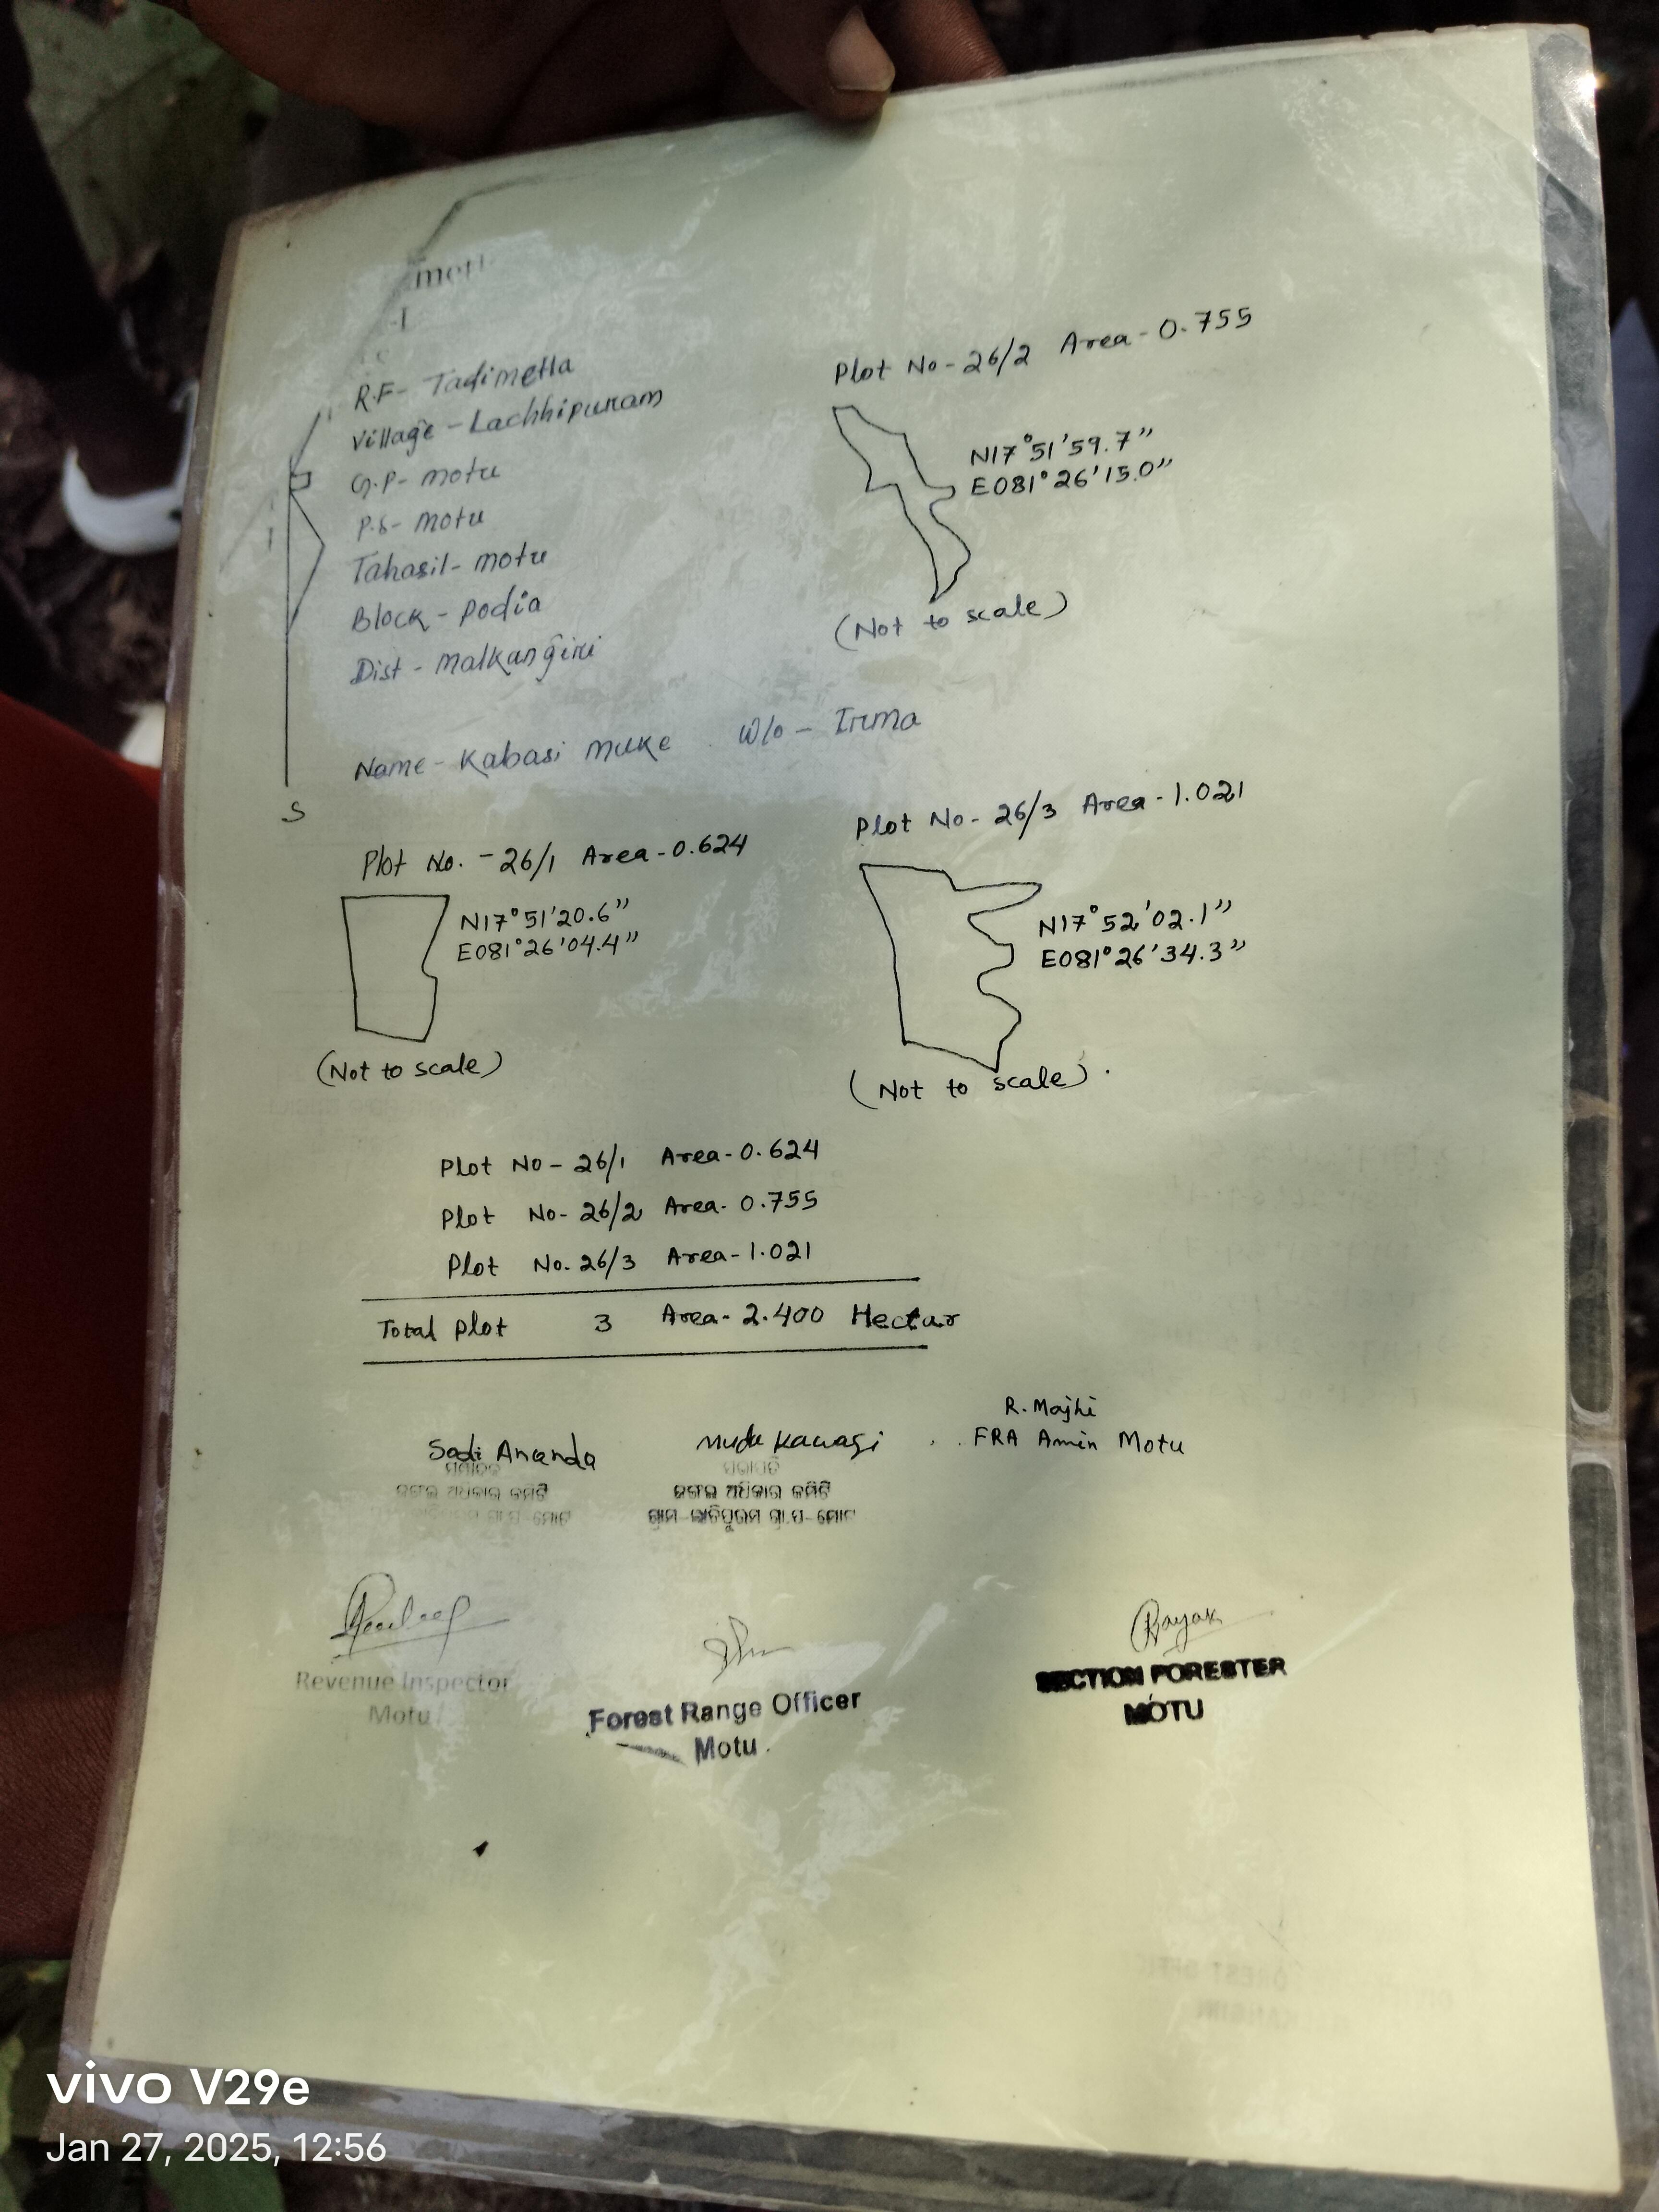 R.F- Tadimetla
Village - Lachhipuram
G.P- motu
P.S- motu
Tahasil- motu
Block - podia
Dist - malkangiri
Name - Kabasi muke W/o - Irma
S
Plot No - 26/2 Area - 0.755
N17°51'59.7"
E081°26'15.0"
(Not to scale)
Plot No. - 26/1 Area - 0.624
N17°51'20.6"
E081°26'04.4"
(Not to scale)
Plot No - 26/3 Area - 1.021
N17°52'02.1"
E081°26'34.3"
(Not to scale)
Plot No - 26/1 Area - 0.624
Plot No - 26/2 Area - 0.755
Plot No. 26/3 Area - 1.021
Total Plot 3 Area - 2.400 Hectur
Sadi Ananda
ଜଙ୍ଗଲ ଅଧିକାର କମିଟି
muda kawasi
ସଭାପତି
ଜଙ୍ଗଲ ଅଧିକାର କମିଟି
R. Majhi
FRA Amin Motu
Revenue Inspector
Motu
Forest Range Officer
Motu
SECTION FORESTER
MOTU
vivo V29e
Jan 27, 2025, 12:56